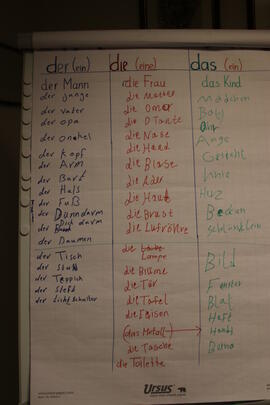 der (ein)
die (eine)
das (ein)
der Mann
der junge
der vater
der opa
der onekel
der Kopf
der Arm
der Bart
der Hals
der Fuß
der Dünndarm
Dick darm
der Daumen
der Tisch
der Stuhl
der Teppich
der Lichtschalter
die Frau
die Mutter
die Omer
die Tante
die Nase
die Hand
die Blase
die Ader
die Haut
die Brust
die Luftröhre
die Lampe
die Blume
die Tür
die Tafel
die Fliesen
(das Metall)
die Tasche
die Toilette
das Kind
Mädchen
Baby
Ohr
Auge
Gesicht
Knie
Herz
Becken
Bild
Fenster
Blat
Heft
Handy
Ursus